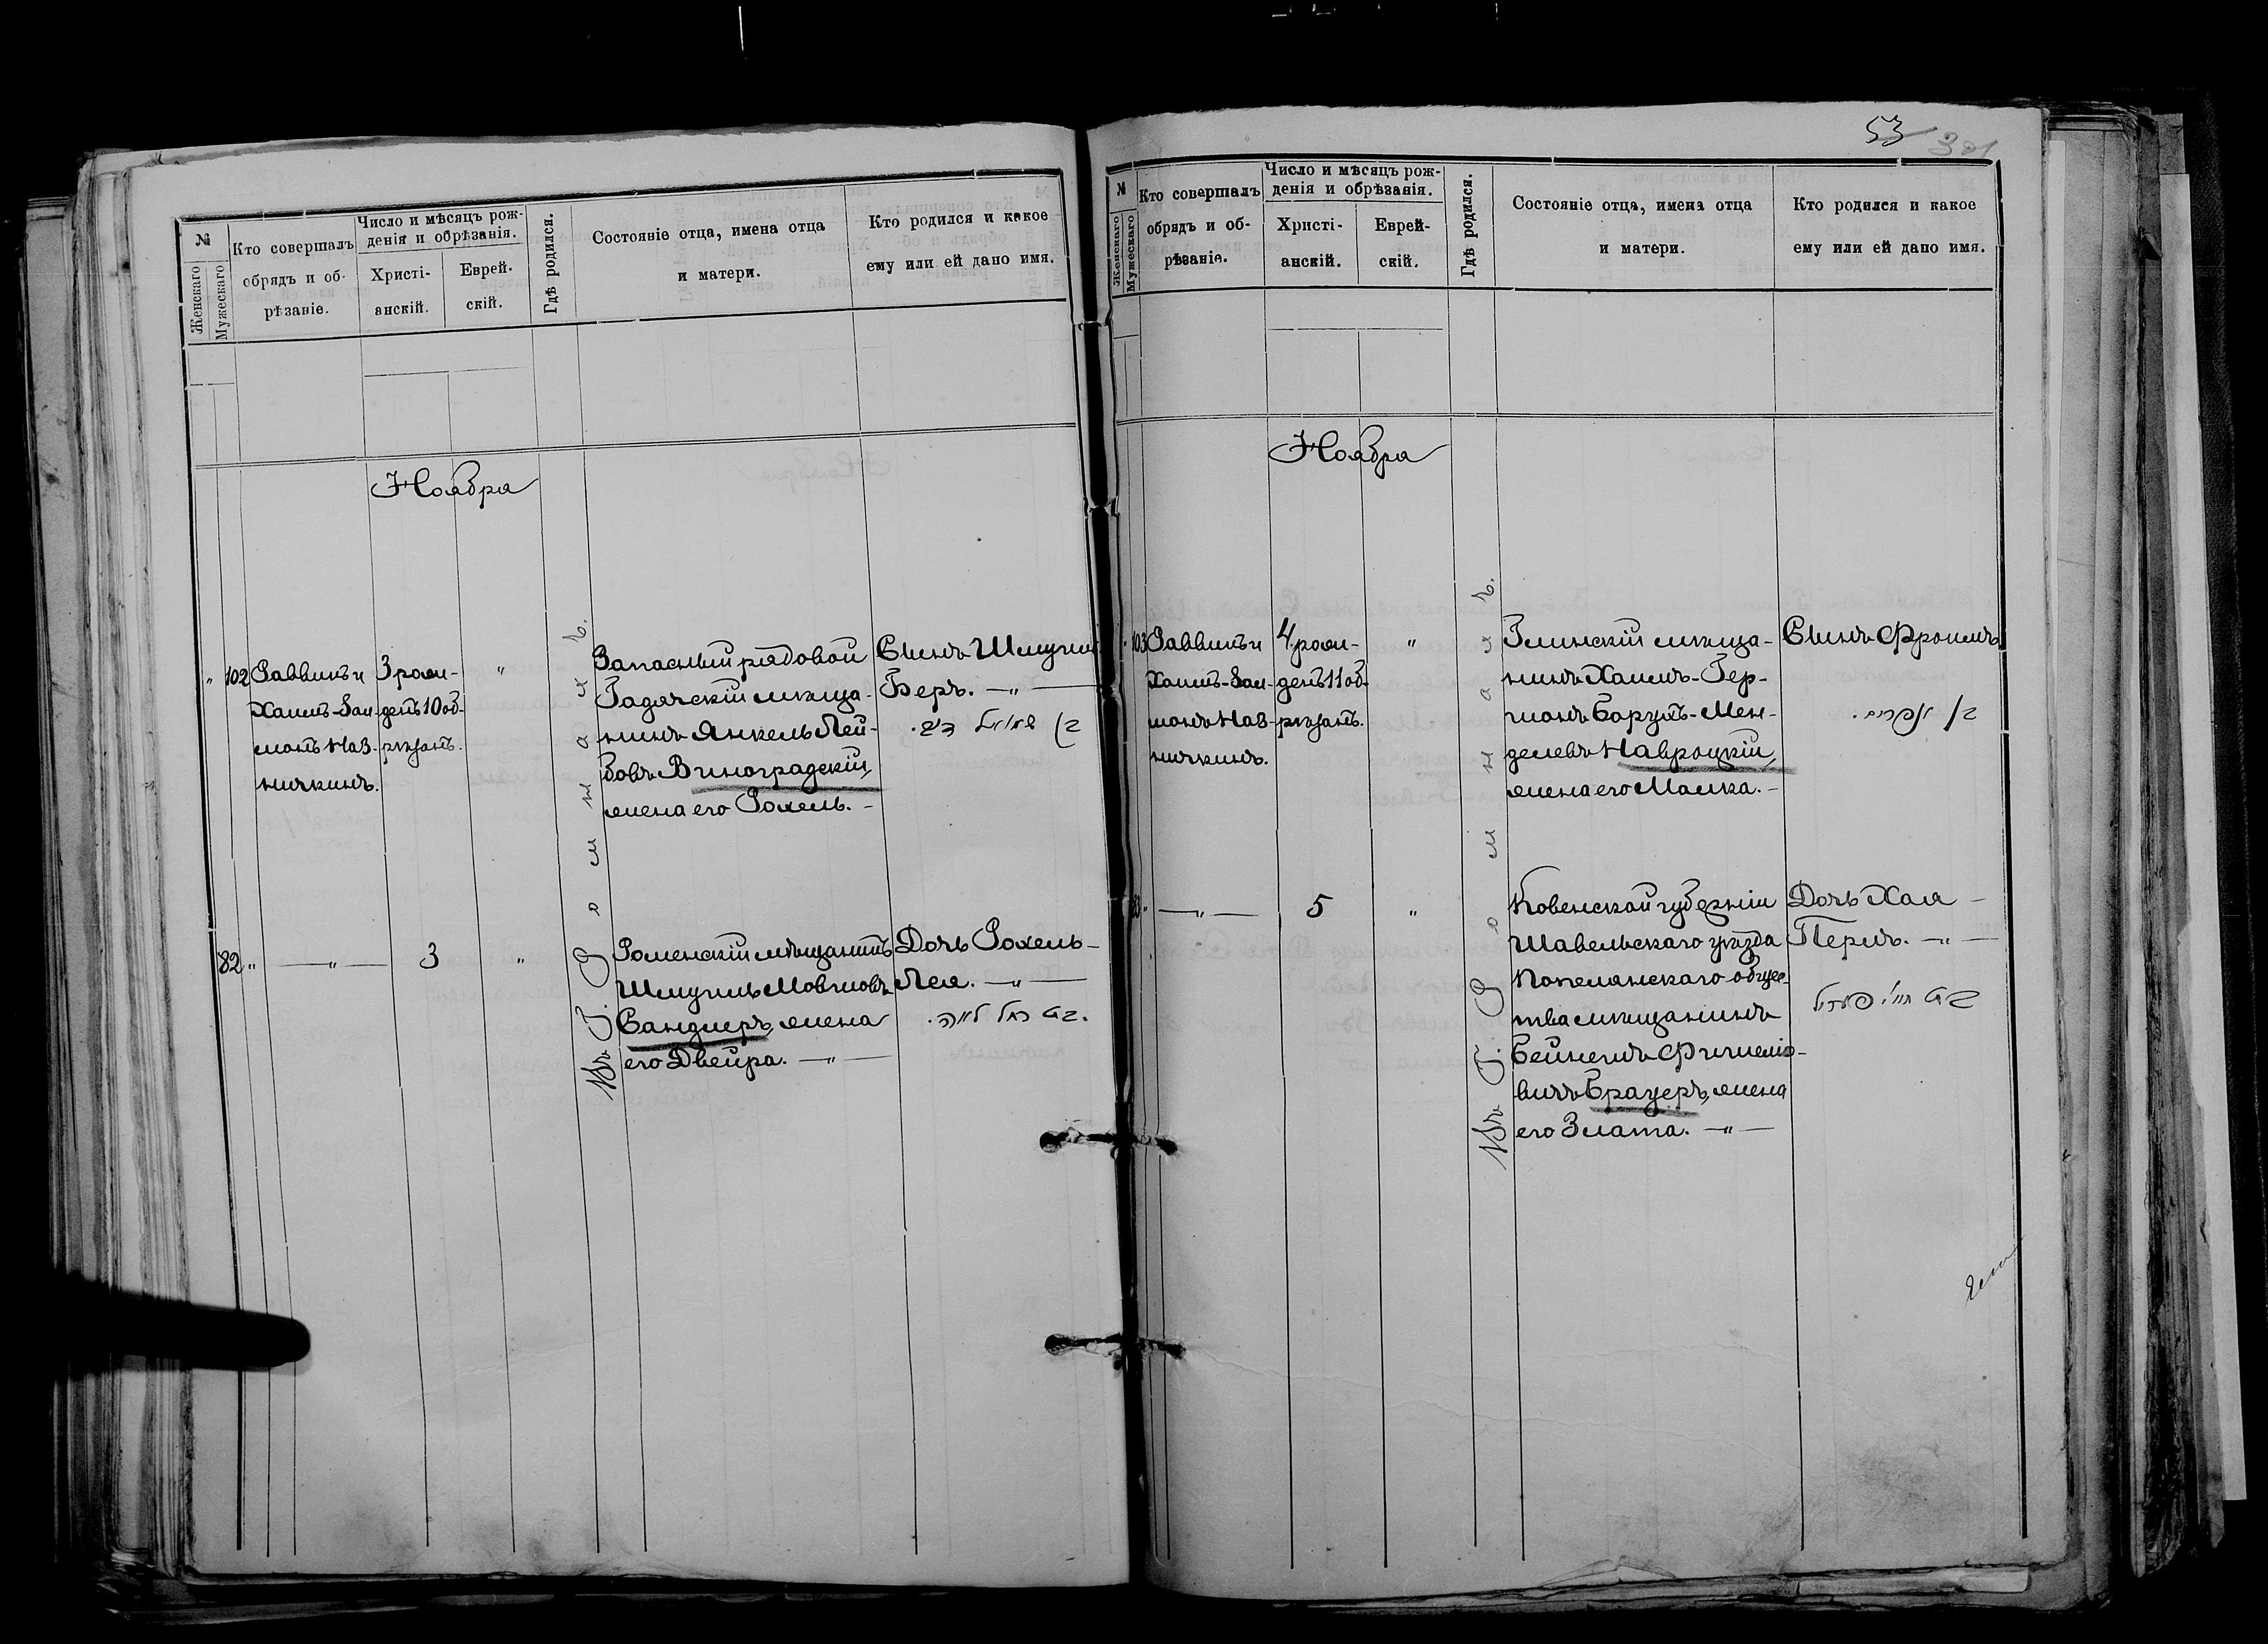 №
Женскаго
Мужескаго
Кто совершалъ
обрядъ и об-
рѣзаніе.
Число и мѣсяцъ рож-
денія и обрѣзанія.
Христі-
анскій.
Еврей-
скій.
Гдѣ родился.
Состояніе отца, имена отца
и матери.
Кто родился и какое
ему или ей дано имя.
Ноября
" 102
Раввинъ и
Хаимъ-Зал-
монъ Наз-
ничкинъ.
3 рож-
денъ 10 об-
рѣзанъ.
"
Въ Г. Ромнахъ.
Запасный рядовой
Гадячскій мѣща-
нинъ Янкель Лей-
бовъ Виноградскій,
жена его Рохель. -
Сынъ Шмуил
Беръ. —"—
בן שמואל בער.
82 "
—"—
3
"
Роменскій мѣщанинъ
Шмуилъ Мовшовъ
Сандлеръ, жена
его Двейра. —"—
Дочь Рохель-
Лея. —"—
בת רחל לאה.
53
№
Женскаго
Мужескаго
Кто совершалъ
обрядъ и об-
рѣзаніе.
Число и мѣсяцъ рож-
денія и обрѣзанія.
Христі-
анскій.
Еврей-
скій.
Гдѣ родился.
Состояніе отца, имена отца
и матери.
Кто родился и какое
ему или ей дано имя.
Ноября
" 103
Раввинъ и
Хаимъ-Зал-
монъ Наз-
ничкинъ.
4 рож-
денъ 11 об-
рѣзанъ.
"
Въ Г. Ромнахъ.
Глинскій мѣща-
нинъ Хаимъ-Гер-
шонъ Борухъ-Мен-
делевъ Навроцкій,
жена его Малка. -
Сынъ Фроимъ
בן אפרים.
83 "
—"—
5
"
Ковенской губерніи
Шавельскаго уѣзда
Попелянскаго общес-
тва мѣщанинъ
Бейнешъ Фишеліо-
вичъ Брауеръ, жена
его Злата. —"—
Дочь Хая -
Перль. —"—
בת חי' פערל